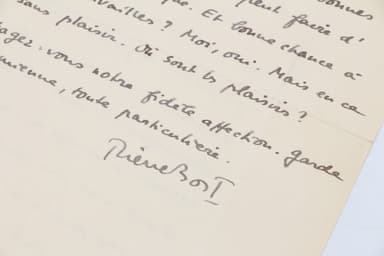 peut faire d'
que. Et bonne chance à
? Moi, oui. Mais en ce
sans plaisir. Où sont les plaisirs ?
vous notre fidèle affection. Garde
mienne, toute particulière.
Pierre